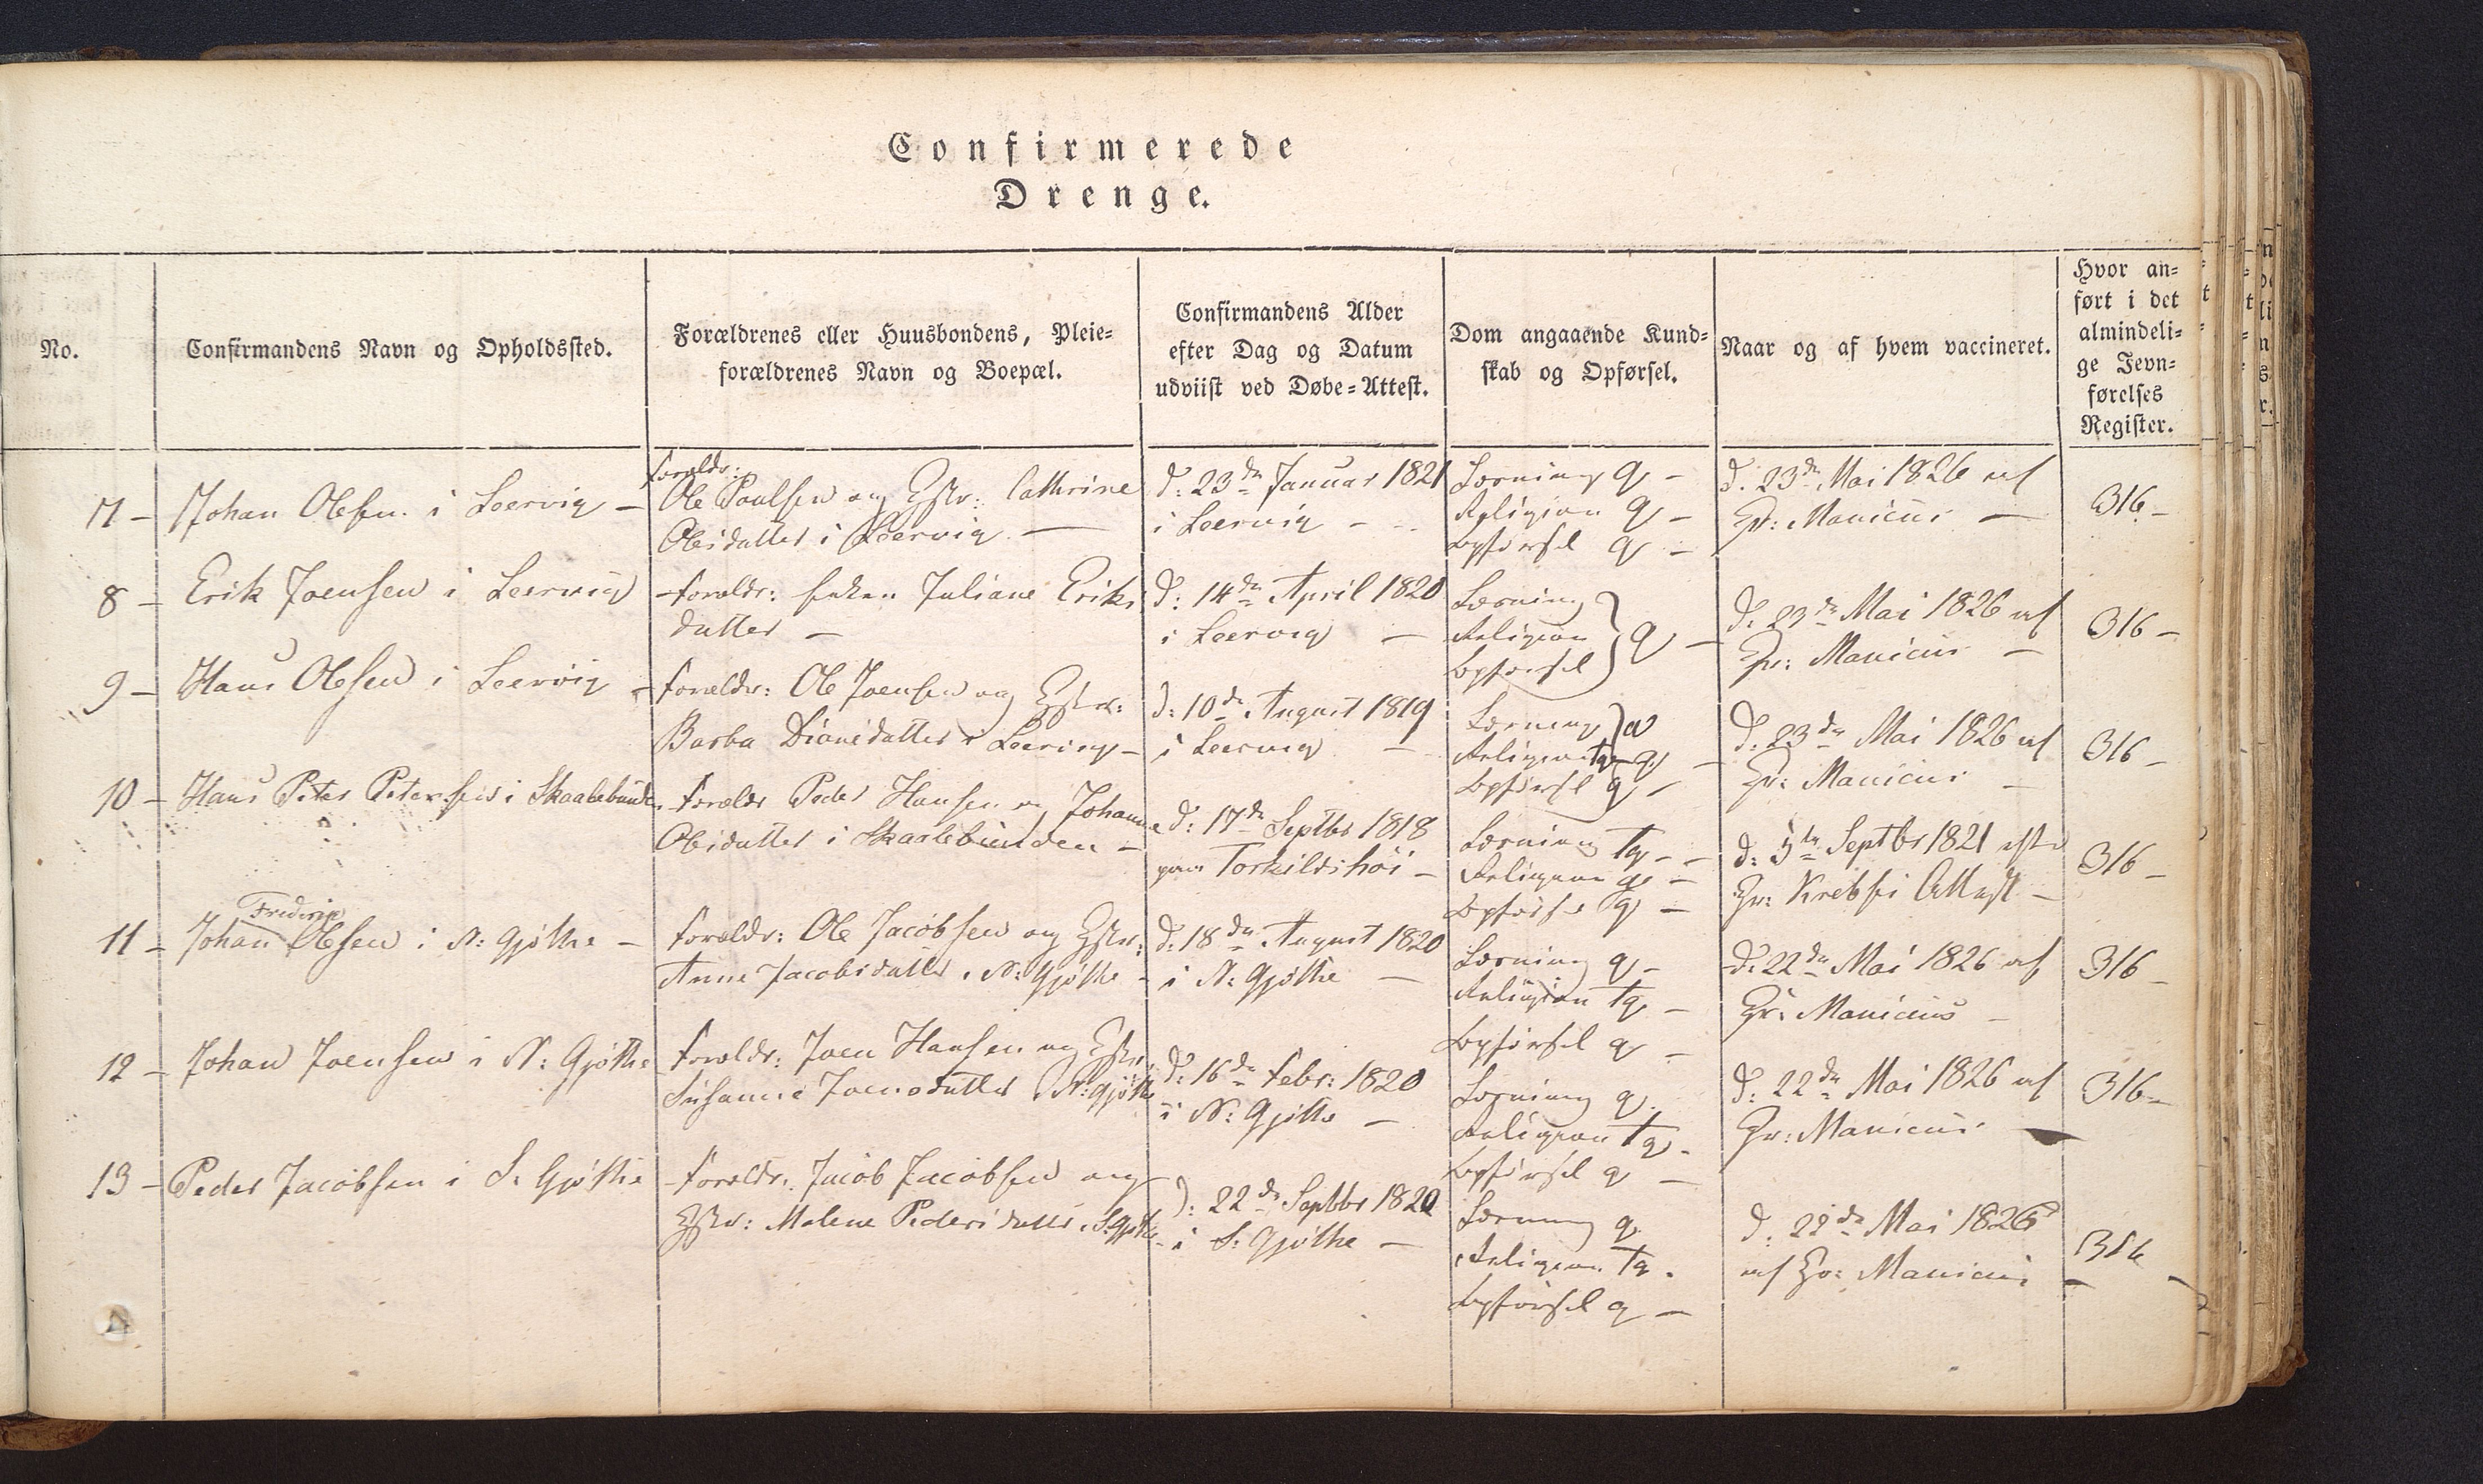 Confirmerede
Drenge.
No.
Confirmandens Navn og Opholdssted.
Forældrenes eller Huusbondens, Pleie-
forældrenes Navn og Boepæl.
Confirmandens Alder
efter Dag og Datum
udviist ved Døbe-Attest.
Dom angaaende Kund-
skab og Opførsel.
Naar og af hvem vaccineret.
Hvor an-
ført i det
almindeli-
ge Jevn-
førelses
Register.
7 - Johan Olesen i Leervig -
Forældr:
Ole Poulsen og Hstr: Cathrine
Olesdatter i Leervig -
d: 23de Januar 1821
i Leervig -
Læsning g -
Religion g -
Opførsel g -
d. 23de Mai 1826 af
Hr: Manicus -
316 -
8 - Erik Joensen i Leervig
Forældr: Juliane Eriks
datter -
d: 14de April 1820
i Leervig -
Læsning
Religion g -
Opførsel
d. 23de Mai 1826 af
Hr: Manicus -
316 -
9 - Hans Olesen i Leervig -
Forældr: Ole Joensen og Hstr:
Barba Dianesdatter i Leervig -
d: 10de August 1819
i Leervig -
Læsning
Religion
Opførsel g -
d. 23de Mai 1826 af
Hr: Manicus -
316 -
10 - Hans Peter Petersen i Skaalebunden
Forældr Peder Hansen og Johanne
Olesdatter i Skaalebunden -
d: 17de Septbr 1818
paa Torkildshöi -
Læsning Tg -
Religion g -
Opførsel g -
d: 5te Septbr 1821 efter
Hr: Krebses Attest -
316 -
Frederik
11 - Johan Olesen i N: Gjøthe -
Forældr: Ole Jacobsen og Hstr:
Anne Jacobsdatter i N: Gjøthe -
d: 18de August 1820
i N: Gjøthe -
Læsning g -
Religion Tg -
Opførsel g -
d. 22de Mai 1826 af
Hr: Manicus -
316 -
12 - Johan Joensen i N: Gjøthe
Forældr: Joen Hansen og Hstr
Susanne Joensdatter i N: Gjøthe
d: 16de Febr: 1820
i N: Gjøthe -
Læsning g.
Religion Tg -
Opførsel g -
d: 22de Mai 1826 af
Hr: Manicus -
316 -
13 - Peder Jacobsen i S. Gjøthe
Forældr: Jacob Jacobsen og
Hstr: Malene Pedersdatter i S: Gjøthe -
d: 22de Septbr 1820
i S: Gjøthe -
Læsning g
Religion Tg.
Opførsel g -
d. 22de Mai 1826
af Hr: Manicus -
316 -